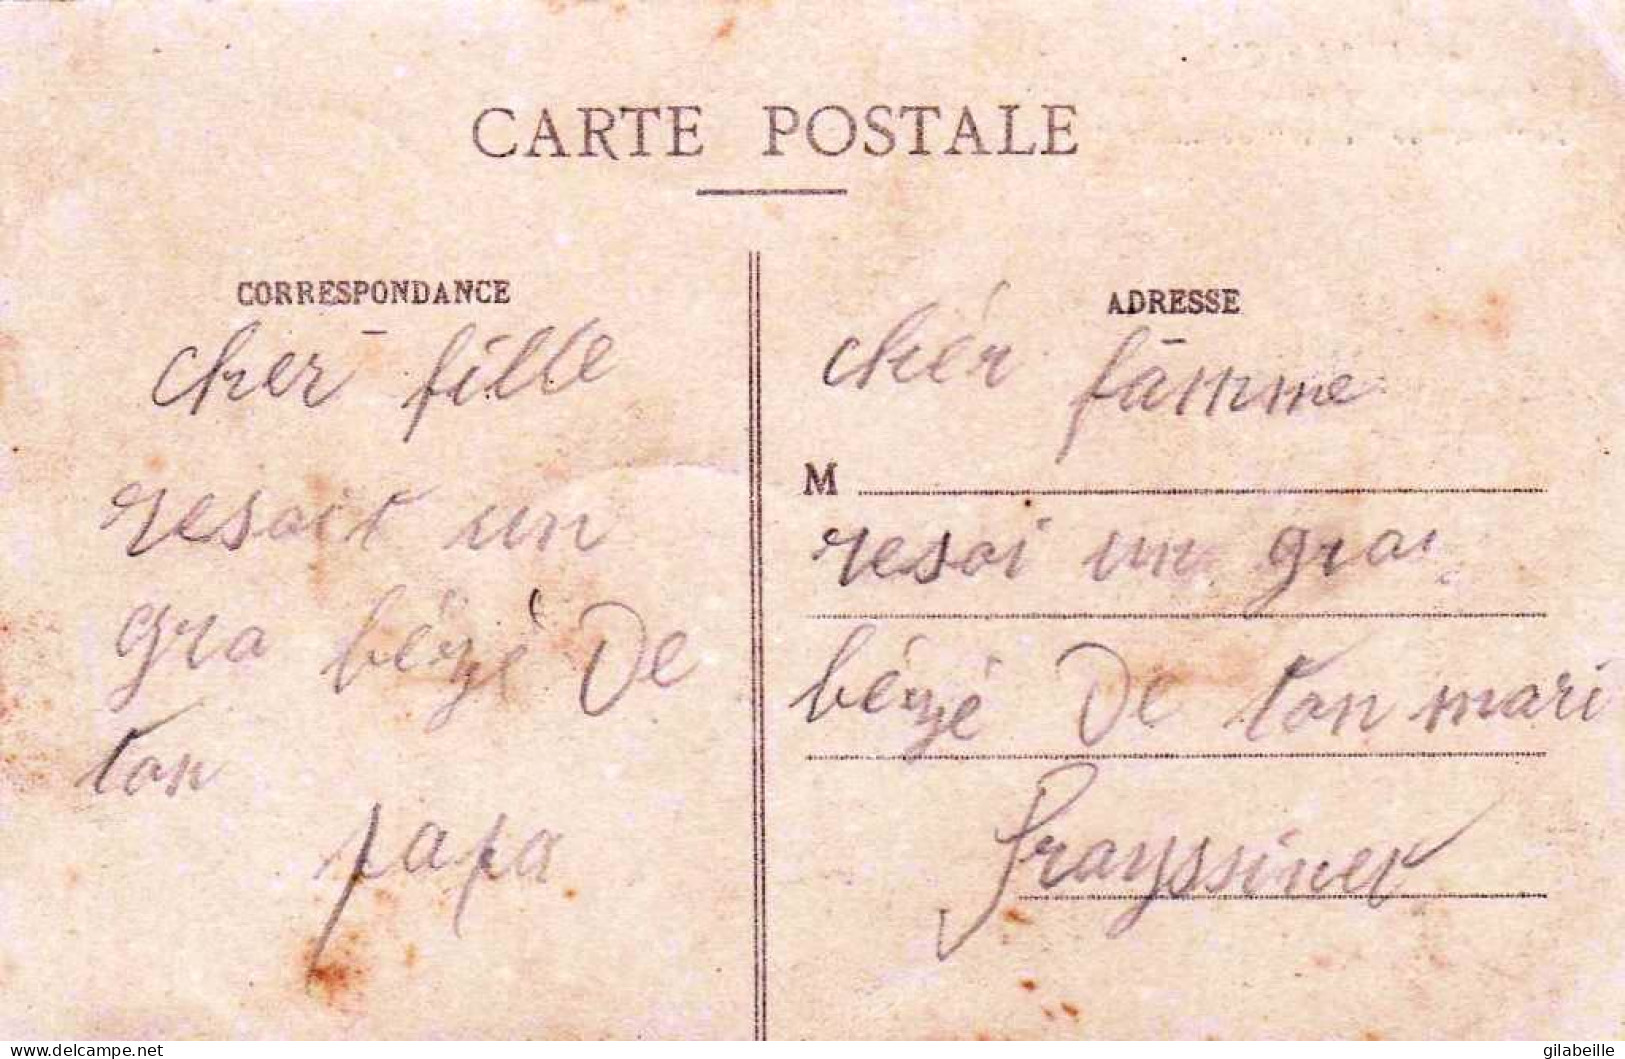 CARTE POSTALE
CORRESPONDANCE
cher fille
resait un
gra bézé de
ton
papa
ADRESSE
chér fámme
M
resoi un gra
bézé de ton mari
Frayssinet
www.delcampe.net
gilabeille